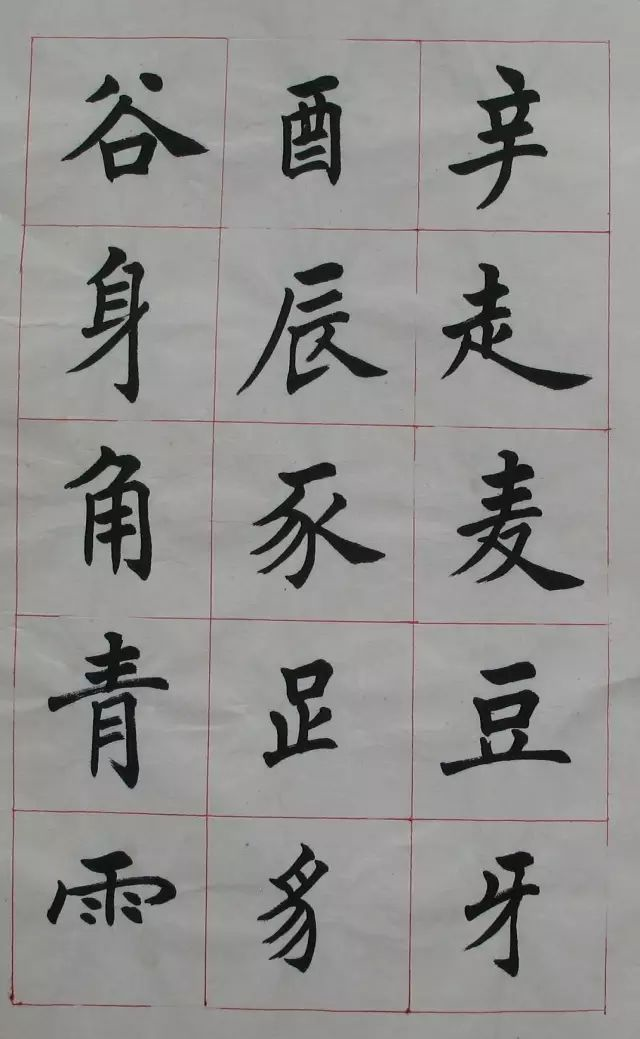 辛走麦豆牙
酉辰豕𧾷豸
谷身角青雨